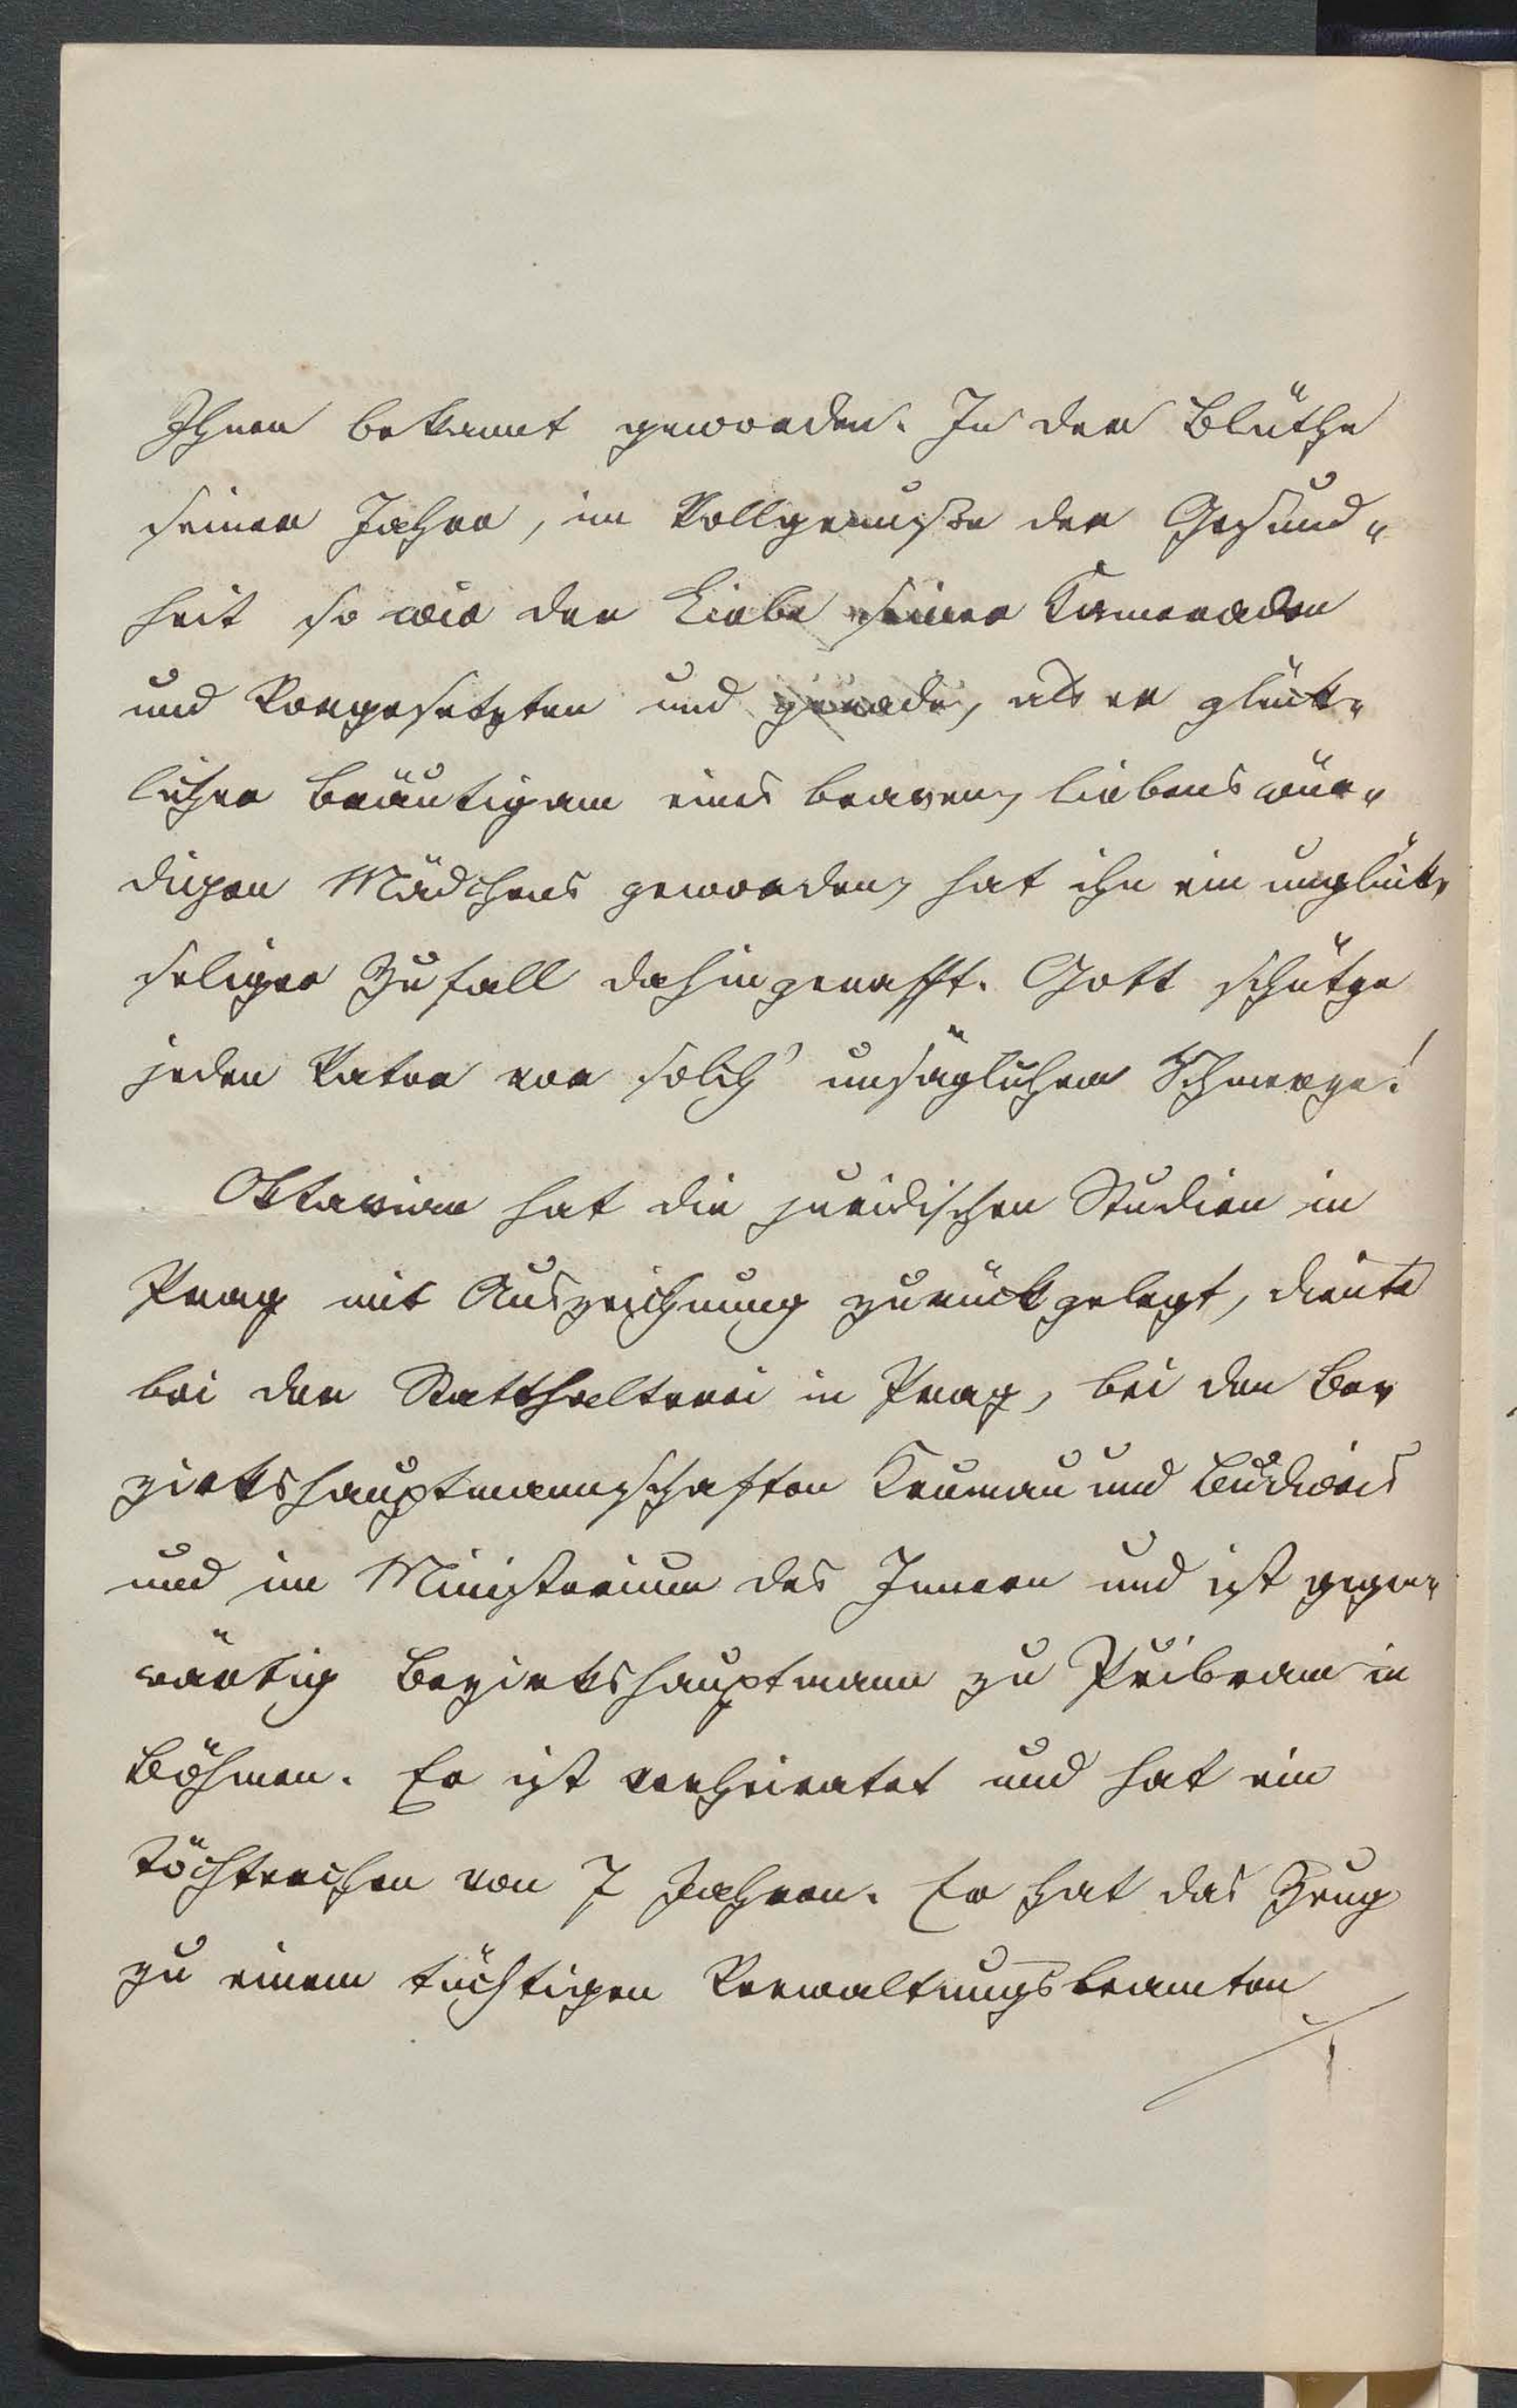 Ihnen bekannt geworden. In der Blüthe
seiner Jahre, im Vollgenuße der Gesund„
heit so wie der Liebe seiner Kameraden
und Vorgesetzten und gerade, als er glück„
licher Bräutigam eines braven, liebenswür„
digen Mädchens geworden, hat ihn ein unglück„
seliger Zufall dahingerafft. Gott schütze
jeden Vater vor solch' unsäglichem Schmerze!
Oktavian hat die juridischen Studien in
Prag mit Auszeichnung zurückgelegt, diente
bei der Statthalterei in Prag, bei den Be„
zirkshauptmannschaften Krumau und Budweis
und im Ministerium des Innern und ist gegen„
wärtig Bezirkshauptmann zu Přibram in
Böhmen. Er ist verheiratet und hat ein
Töchterchen von 7 Jahren. Er hat das Zeug
zu einem tüchtigen Verwaltungsbeamten